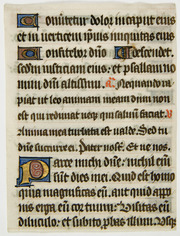 Conuertetur dolor in caput eius
et in uerticem ipsius iniquitas eius
Confitebor dño descendet
sedm iusticiam eius: et psallam no
mini dñi altissimi. Nequando ra
piat ut leo animam meam dum non
est qui redimat neqz qui saluum faciat.
Anima mea turbata est ualde. Sed tu
dñe succurre ei. Pater nost. Et ne nos.
Parce michi dñe: nichil eni
sunt dies mei. Quid est homo
quia magnificas eum. aut quid appo
nis erga eum cor tuum. Visitas eum
diluculo: et subito probas illum.